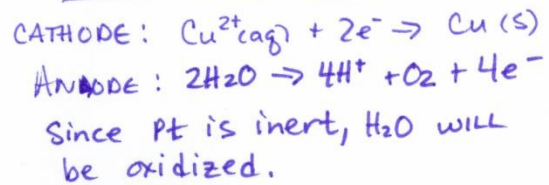 CATHODE: Cu²⁺(aq) + 2e⁻ → Cu (s)
ANODE: 2H₂O → 4H⁺ + O₂ + 4e⁻
Since Pt is inert, H₂O WILL
be oxidized.